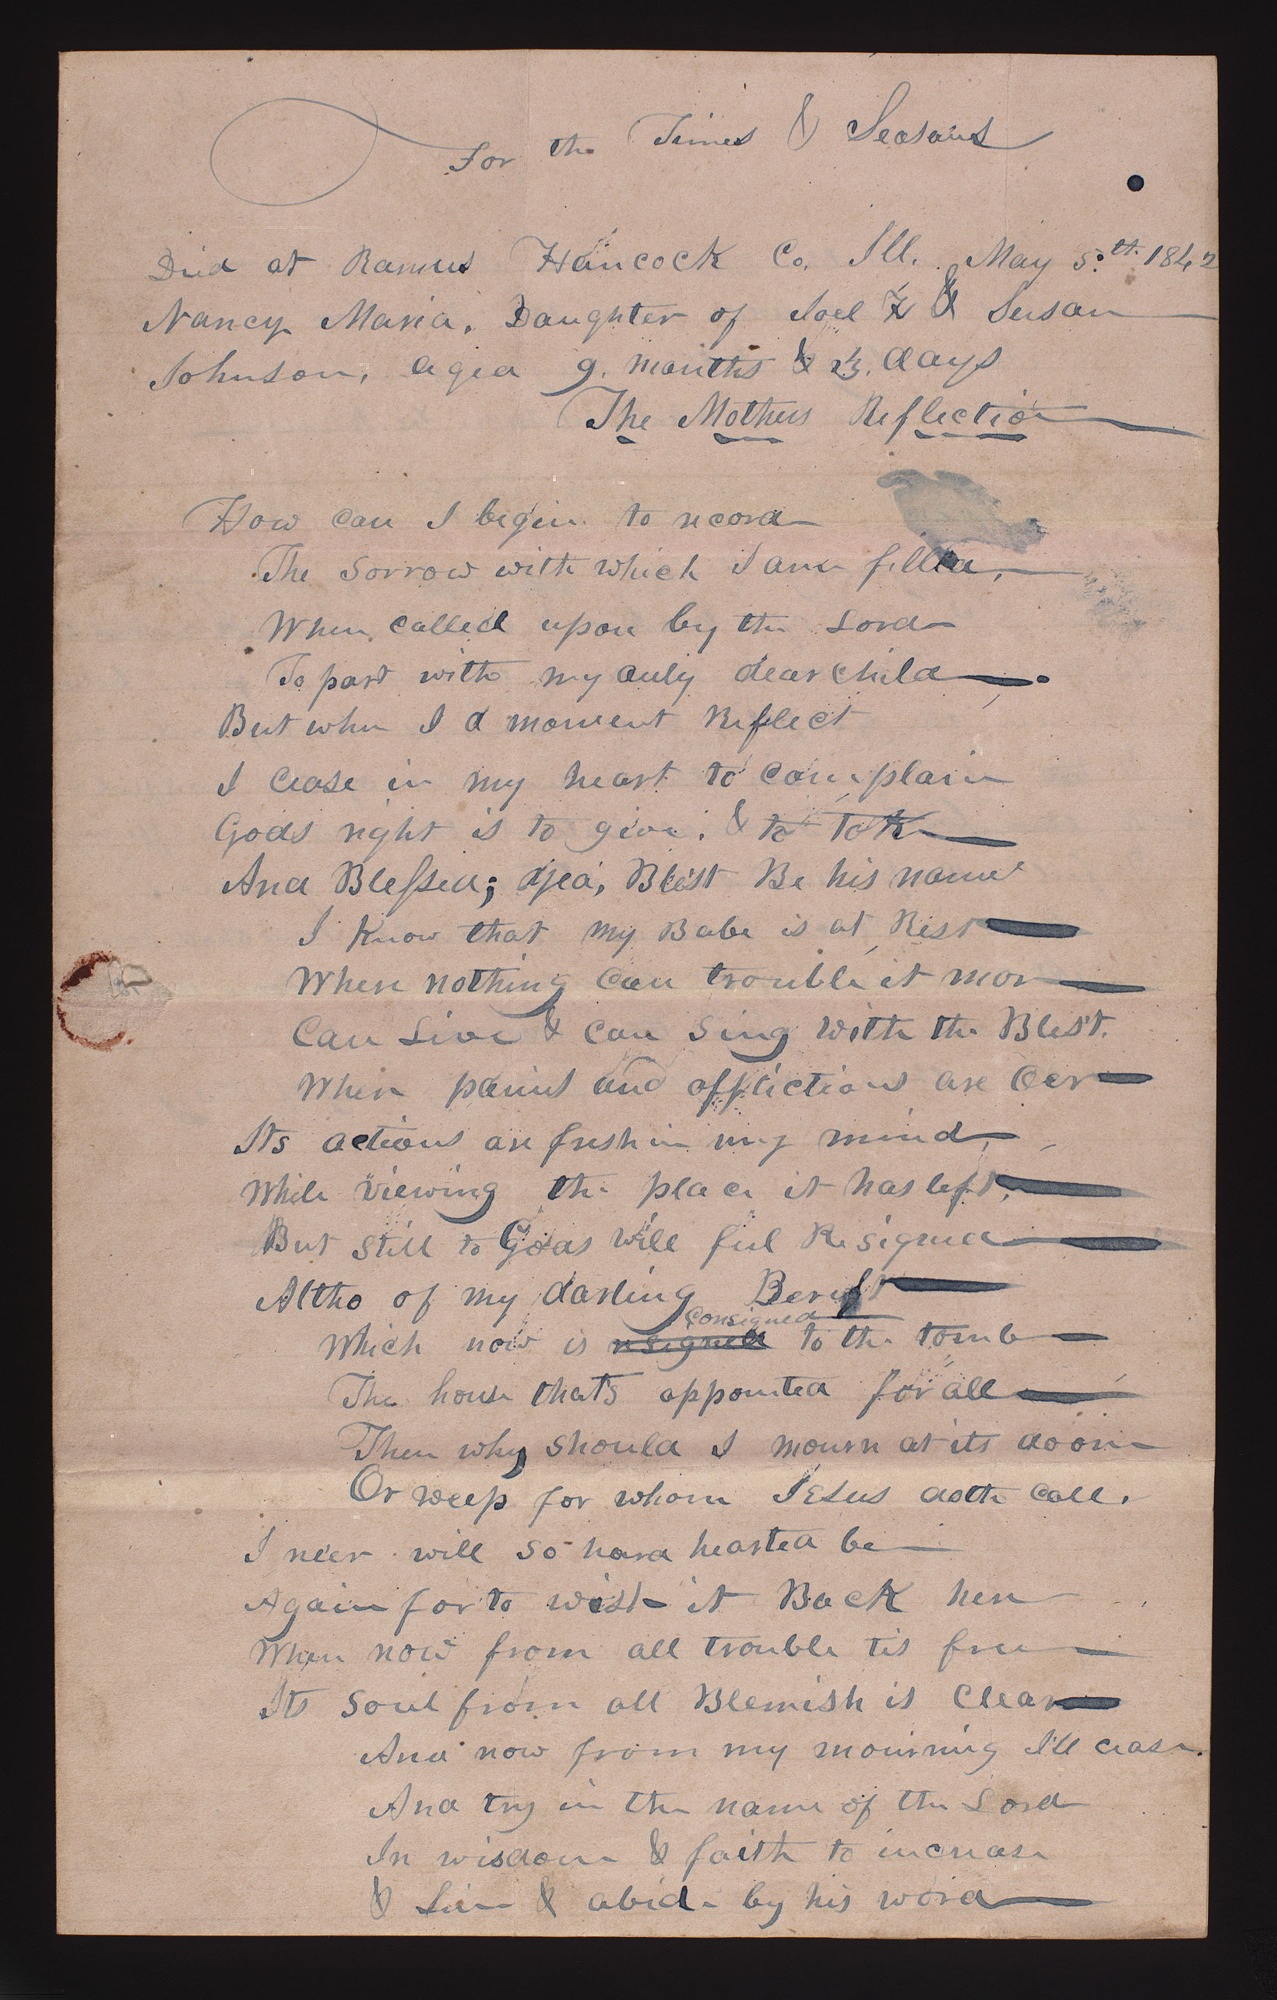 For the Times & Seasons
Died at Ramus Hancock Co. Ill. May 5th. 1842
Nancy Maria, Daughter of Joel H & Susan
Johnson, aged 9. months & 23. days
The Mothers Reflection
How can I begin to record
The sorrow with which I am filled,
When called upon by the Lord
To part with my only dear child
But when I a moment Reflect
I cease in my heart to complain
Gods right is to give, & to tak
And Blessed; Yea, Blest Be his name
I Know that my Babe is at Rest
Where nothing can trouble it mor
Can Live & can Sing With the Blest.
Where pains and afflictions are Oer
Its actions are fresh in my mind,
While Viewing the place it has left,
But still to Gods will feel Resigned
Altho of my darling Bereft
consigned
Which now is resigned to the tomb
The house that's appointed for all
Then why should I mourn at its doom
Or weep for whom Jesus doth call.
I neer will so hard hearted be
Again for to wish it Back here
When now from all trouble tis free
Its soul from all Blemish is Clear
And now from my mourning I'll cease.
And try in the name of the Lord
In wisdom & faith to increase
& Live & abide by his word